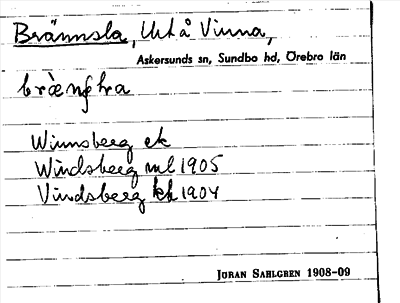 Brännsla, Utå Vinna,
Askersunds sn, Sundbo hd, Örebro län
brængtra
Winnsberg ek
Windsberg ml 1905
Vindsberg kh 1904
JÖRAN SAHLGREN 1908-09